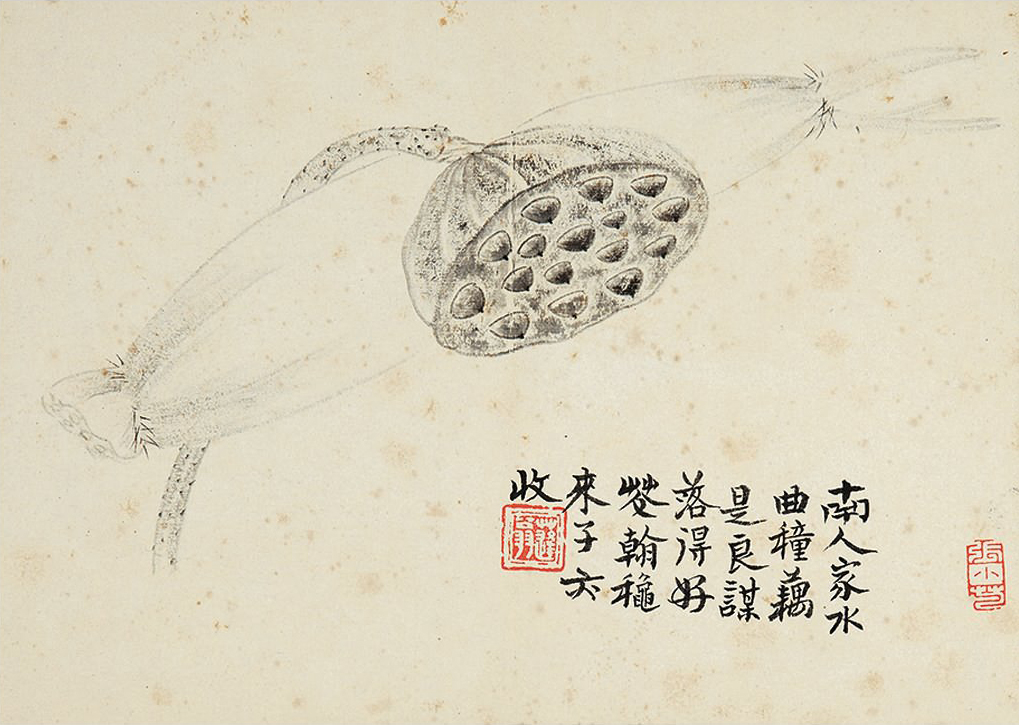 南人家水
曲穜藕
是良謀
落得好
翰龝
來子亦
收